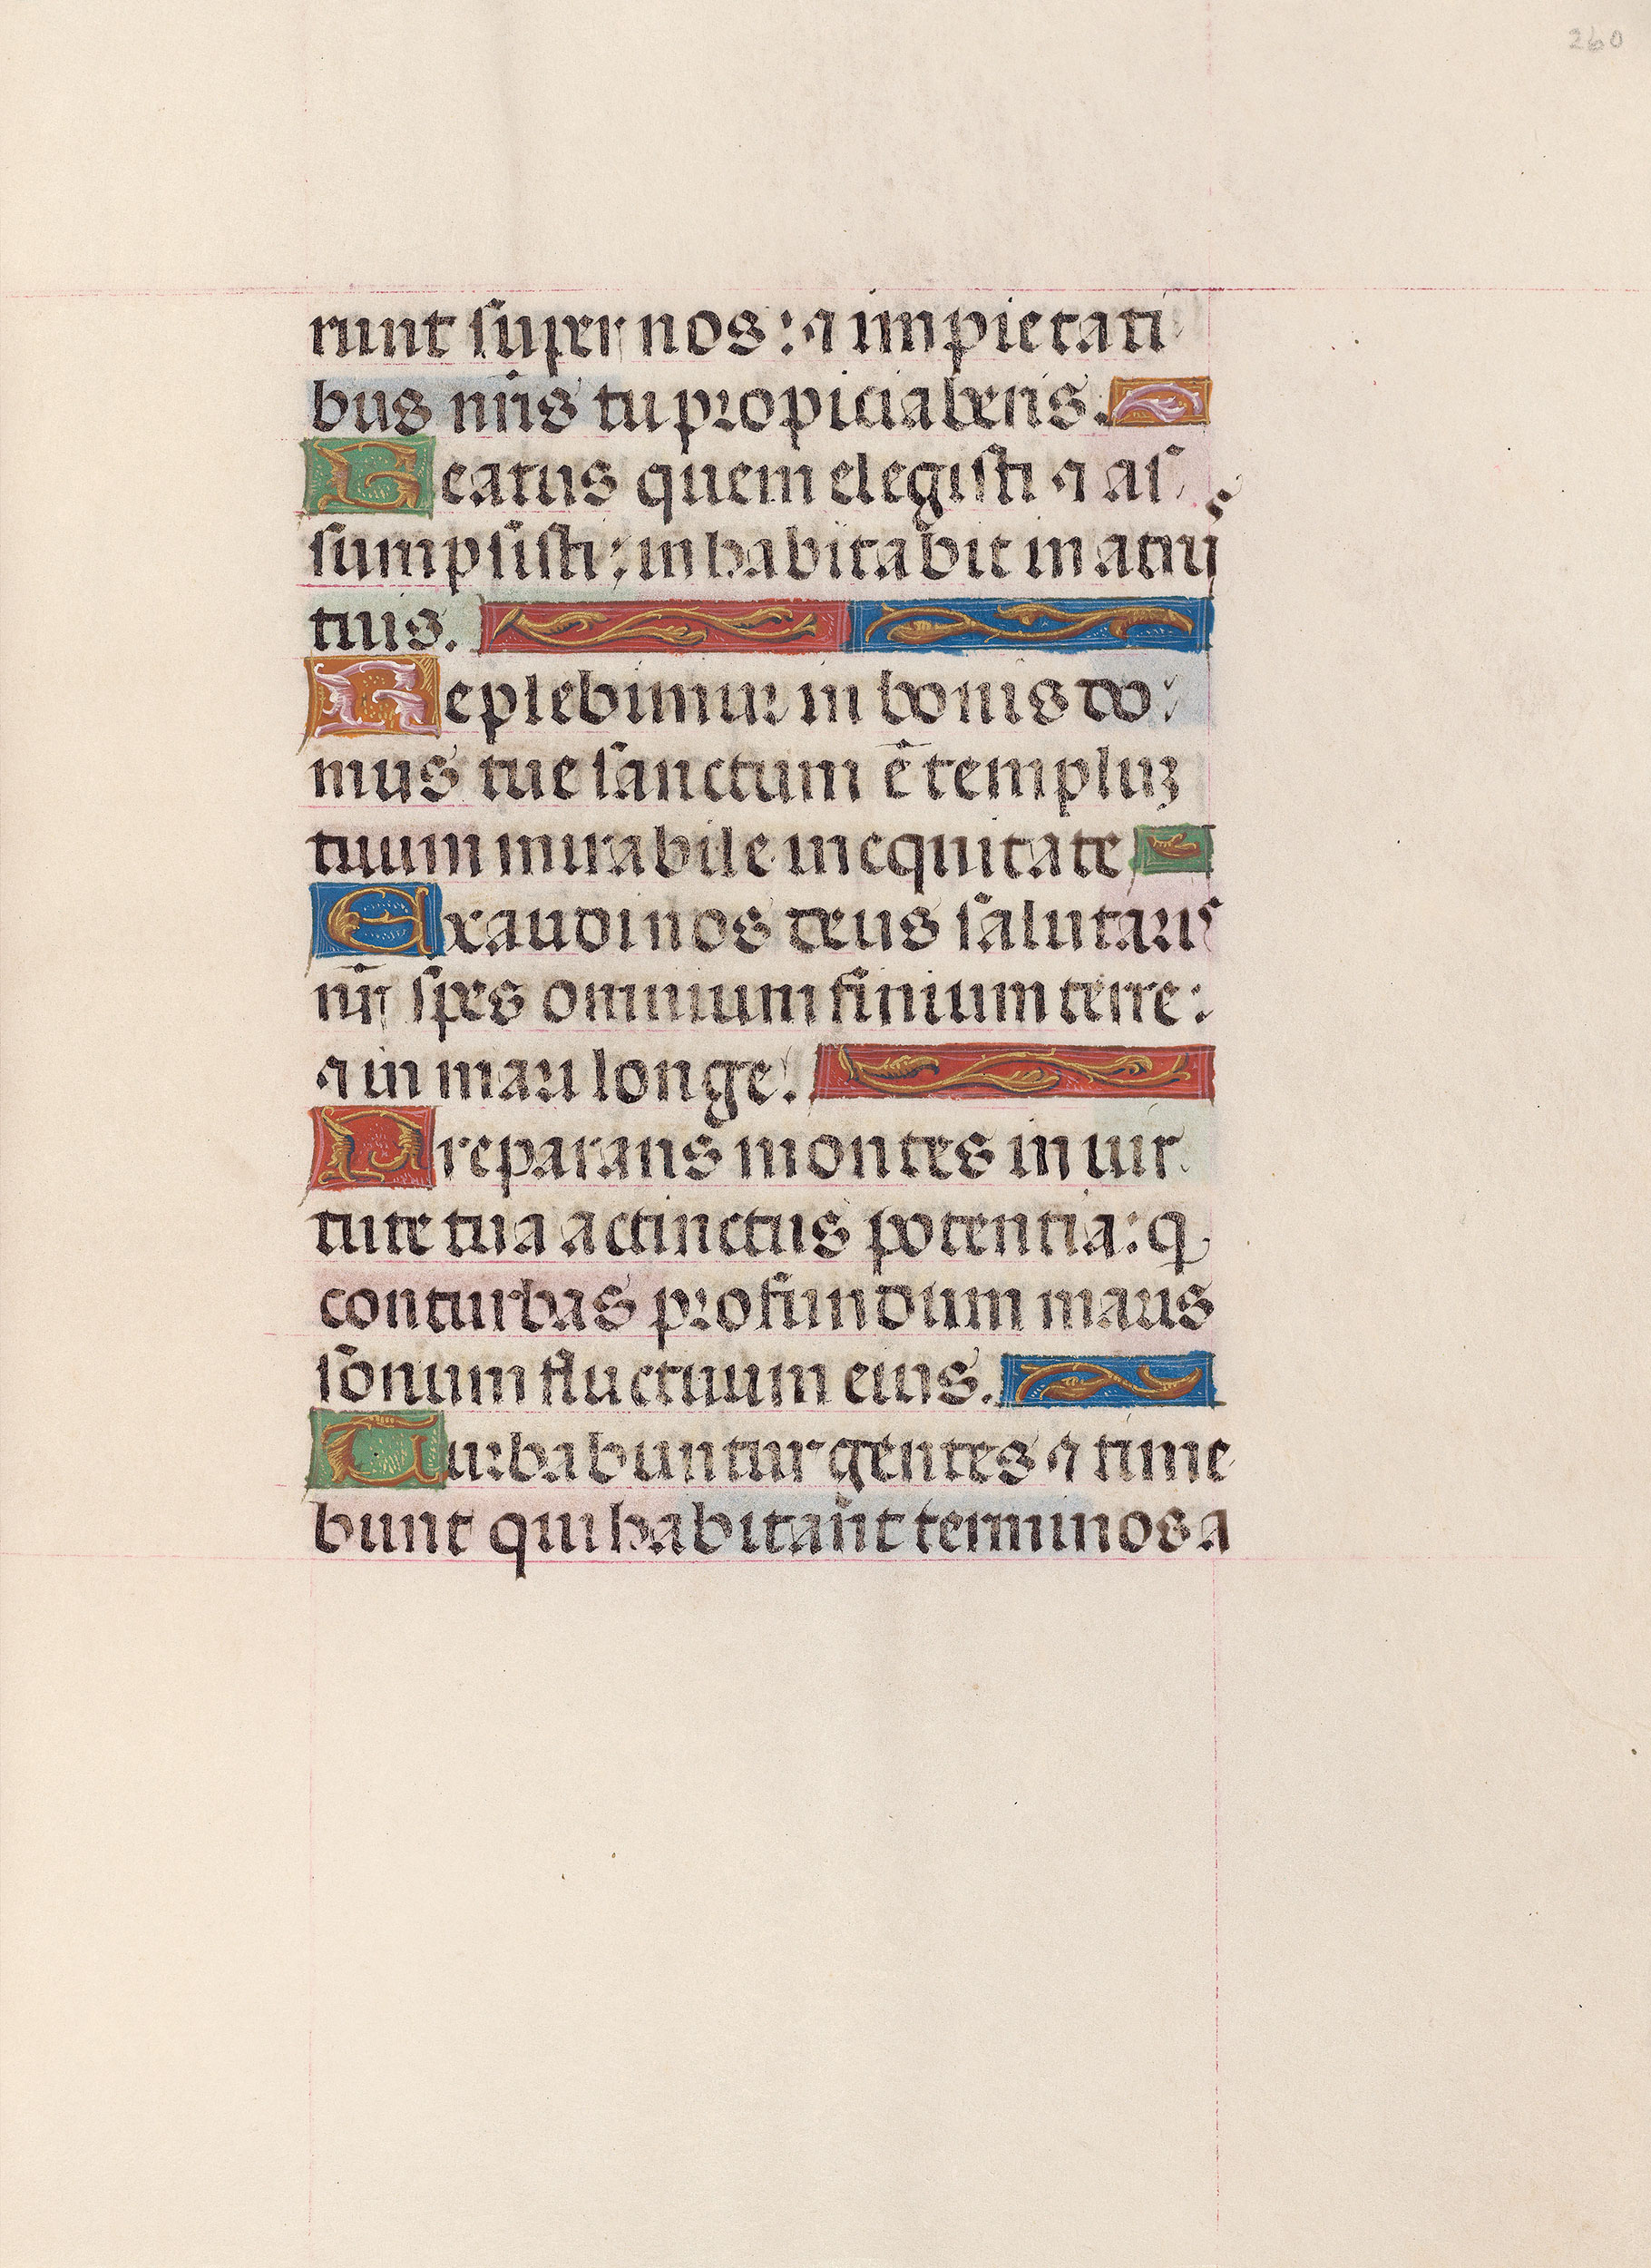 260
runt super nos: ⁊ impietati
bus nr̄is tu propiciaberis.
Beatus quem elegisti ⁊ as
sumpsisti: inhabitabit in atrij
tuis.
Replebimur in bonis do
mus tue sanctum ē templuꝫ
tuum mirabile in equitate
Exaudi nos deus salutaris
nr̄ spes omnium finium terre:
⁊ in mari longe.
Preparans montes in uir
tute tua actinctus potentia: q
conturbas profundum maris
sonum fluctuum eius.
Turbabuntur gentes ⁊ time
bunt qui habitāt terminos a